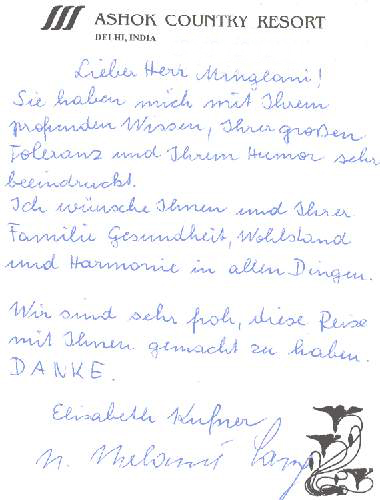 ASHOK COUNTRY RESORT
DELHI, INDIA
Lieber Herr Minglani!
Sie haben mich mit Ihrem
profunden Wissen, Ihrer großen
Toleranz und Ihrem Humor sehr
beeindruckt.
Ich wünsche Ihnen und Ihrer
Familie Gesundheit, Wohlstand
und Harmonie in allen Dingen.
Wir sind sehr froh, diese Reise
mit Ihnen gemacht zu haben.
DANKE.
Elisabeth Kufner